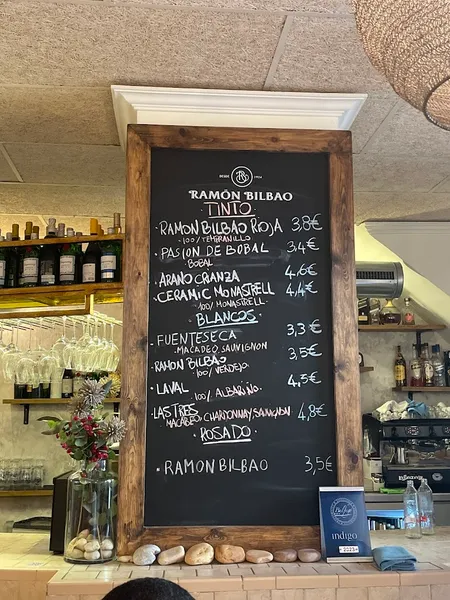 DESDE 1924
RAMÓN BILBAO
TINTO
· RAMON BILBAO RIOJA 3,8€
· 100% TEMPRANILLO
· PASION DE BOBAL 3,4€
BOBAL
· ARANO CRIANZA 4,6€
· CERAMIC MONASTRELL 4,4€
· 100% MONASTRELL
BLANCOS
· FUENTESECA 3,3€
· MACABEO, SAUVIGNON
· RAMON BILBAO 3,5€
· 100% VERDEJO
· LAVAL 4,5€
· 100% ALBARIÑO
· LAS TRES 4,8€
MACABEO, CHARDONNAY, SAUVIGNON
ROSADO
· RAMON BILBAO 3,5€
indigo
2023